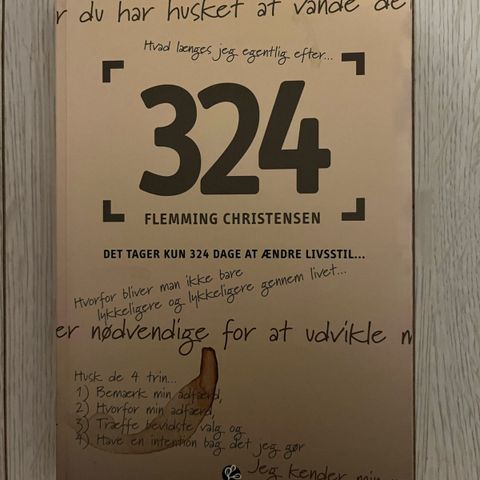 r du har husket at vande de
Hvad længes jeg egentlig efter...
324
FLEMMING CHRISTENSEN
DET TAGER KUN 324 DAGE AT ÆNDRE LIVSSTIL...
Hvorfor bliver man ikke bare
lykkeligere og lykkeligere gennem livet...
er nødvendige for at udvikle m
Husk de 4 trin...
1) Bemærk min adfærd,
2) Hvorfor min adfærd,
3) Træffe bevidste valg og
4) Have en intention bag det jeg gør
Jeg kender